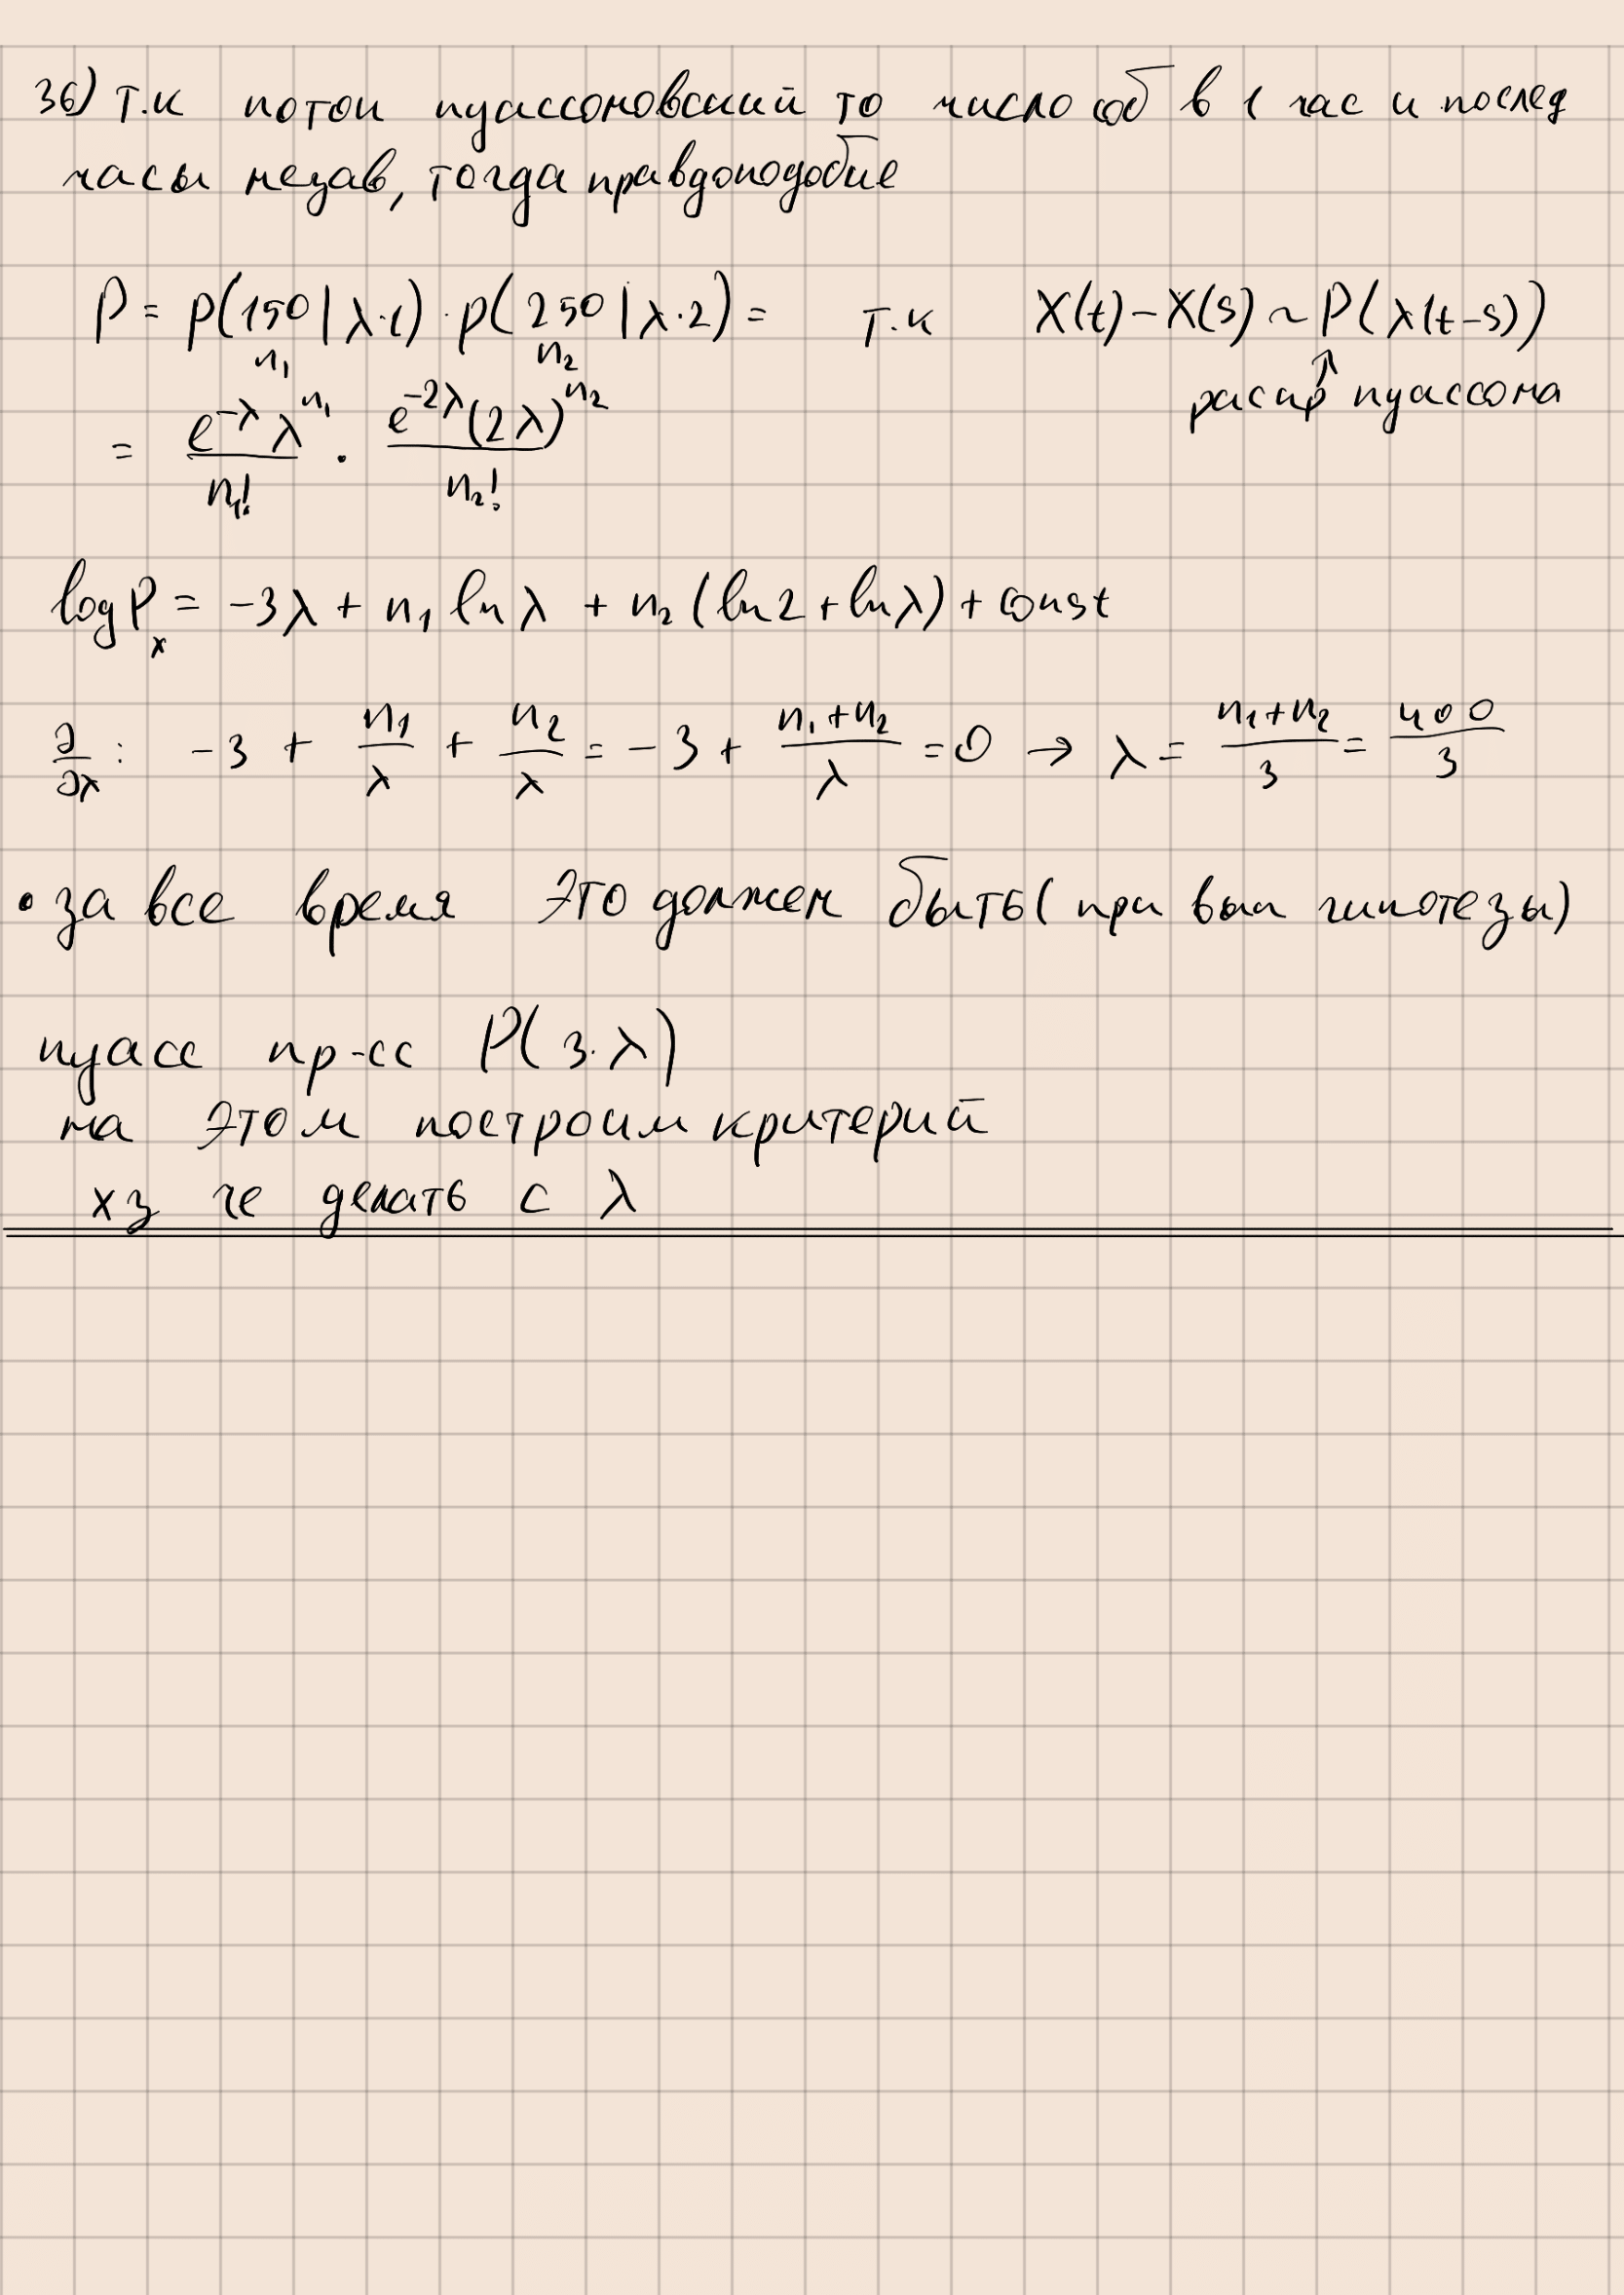 36) Т.к поток пуассоновский то число соб в 1 час и послед
часы незав, тогда правдоподобие
P = p(150 | λ·1) · p(250 | λ·2) = т.к X(t) - X(s) ~ P(λ(t-s))
n₁ n₂ ↑
распр пуассона
= e^{-λ} λ^{n₁} / n₁! · e^{-2λ} (2λ)^{n₂} / n₂!
log Pₓ = -3λ + n₁ ln λ + n₂ (ln 2 + ln λ) + const
∂/∂λ : -3 + n₁/λ + n₂/λ = -3 + (n₁+n₂)/λ = 0 → λ = (n₁+n₂)/3 = 400/3
• за все время это должен быть (при вып гипотезы)
пуасс пр-сс P(3·λ)
на этом построим критерий
хз че делать с λ